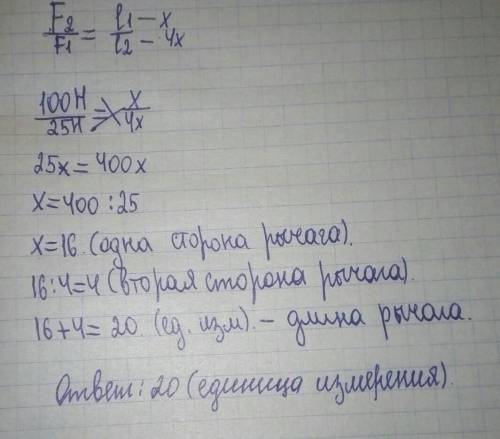 F₂/F₁ = l₁ – x/l₂ – 4x
100Н/25Н = x/4x
25x = 400x
x = 400 : 25
x = 16. (одна сторона рычага).
16 : 4 = 4 (вторая сторона рычага).
16 + 4 = 20. (ед. изм). – длина рычага.
Ответ: 20 (единица измерения).